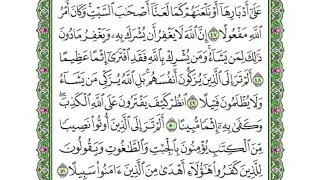 عَلَىٰٓ أَدۡبَارِهَآ أَوۡ نَلۡعَنَهُمۡ كَمَا لَعَنَّآ أَصۡحَٰبَ ٱلسَّبۡتِۚ وَكَانَ أَمۡرُ
ٱللَّهِ مَفۡعُولًا ٤٧ إِنَّ ٱللَّهَ لَا يَغۡفِرُ أَن يُشۡرَكَ بِهِۦ وَيَغۡفِرُ مَا دُونَ
ذَٰلِكَ لِمَن يَشَآءُۚ وَمَن يُشۡرِكۡ بِٱللَّهِ فَقَدِ ٱفۡتَرَىٰٓ إِثۡمًا عَظِيمًا
٤٨ أَلَمۡ تَرَ إِلَى ٱلَّذِينَ يُزَكُّونَ أَنفُسَهُمۚ بَلِ ٱللَّهُ يُزَكِّي مَن يَشَآءُ
وَلَا يُظۡلَمُونَ فَتِيلًا ٤٩ ٱنظُرۡ كَيۡفَ يَفۡتَرُونَ عَلَى ٱللَّهِ ٱلۡكَذِبَۖ
وَكَفَىٰ بِهِۦٓ إِثۡمًا مُّبِينًا ٥٠ أَلَمۡ تَرَ إِلَى ٱلَّذِينَ أُوتُواْ نَصِيبًا
مِّنَ ٱلۡكِتَٰبِ يُؤۡمِنُونَ بِٱلۡجِبۡتِ وَٱلطَّٰغُوتِ وَيَقُولُونَ
لِلَّذِينَ كَفَرُواْ هَٰٓؤُلَآءِ أَهۡدَىٰ مِنَ ٱلَّذِينَ ءَامَنُواْ سَبِيلًا ٥١